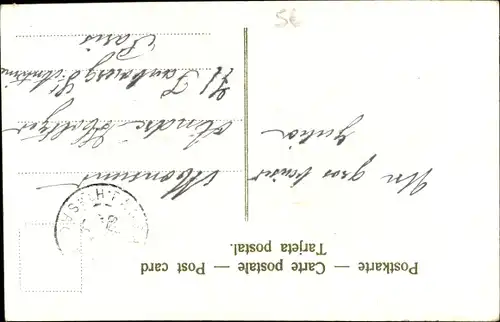 Postkarte — Carte postale — Post card
Tarjeta postal.
Un gros baiser
Julia
Monsieur
André Holtzer
71 Faubourg St. Antoine
Paris
5€